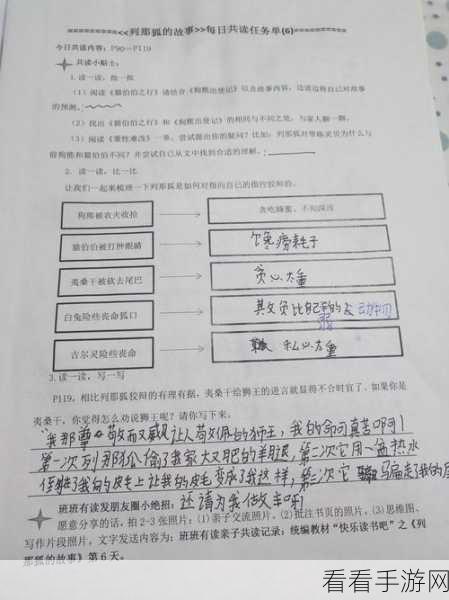 <<列那狐的故事>>每日共读任务单(6)
今日共读内容：P90—P119
共读小贴士：
1.读一读，做一做
(1) 阅读《猫伯伯之行》请结合《狗熊出使记》以及故事内容，边读边将自己对故事
的预测。
(2) 找出《猫伯伯之行》和《狗熊出使记》的相同与不同之处，与家人聊一聊。
(3) 阅读《重性难改》一章，尝试提出你的疑问？比如：列那狐对
前狗熊和猫伯伯不同？并尝试自己从文中找到合适的理解。
2. 读一读，比一比
让我们一起来梳理一下列那狐是如何对指向自己的指控狡辩的。
狗熊被农夫收拾
贪吃蜂蜜，不知深浅
猫伯伯被打肿眼睛
馋痨耗子
夷桑干被砍去尾巴
贪心太重
白兔险些丧命狐口
其文负比自己的
弱 动物
吉尔灵险些丧命
私心太重
3.读一读，写一写
P119，相比列那狐狡辩的有理有据，夷桑干给狮王的进言就显得不合时宜了。如果你是
夷桑干，你觉得怎么劝说狮王呢？请你写下来。
"我那尊敬而又威 让人敬佩的狮王，我的命可真苦啊！
第一次列那狐偷了我家大又肥的羊腿，第二次它用一面热水
在我的皮毛上让我的皮毛变成了我这样，第三次它 骗走了我的
还请为我做主啊！
班班有读发朋友圈小绝招：
愿意分享的话，拍 2-3 张照片：(1)亲子交流照片。(2)批注书页的照片。(3)思维
写作片段照片。文字发送内容为：班班有读亲子共读记录：统编教材“快乐读书吧”之《列
那狐的故事》第 6 天。
看看手游网
www.kkssyy.com